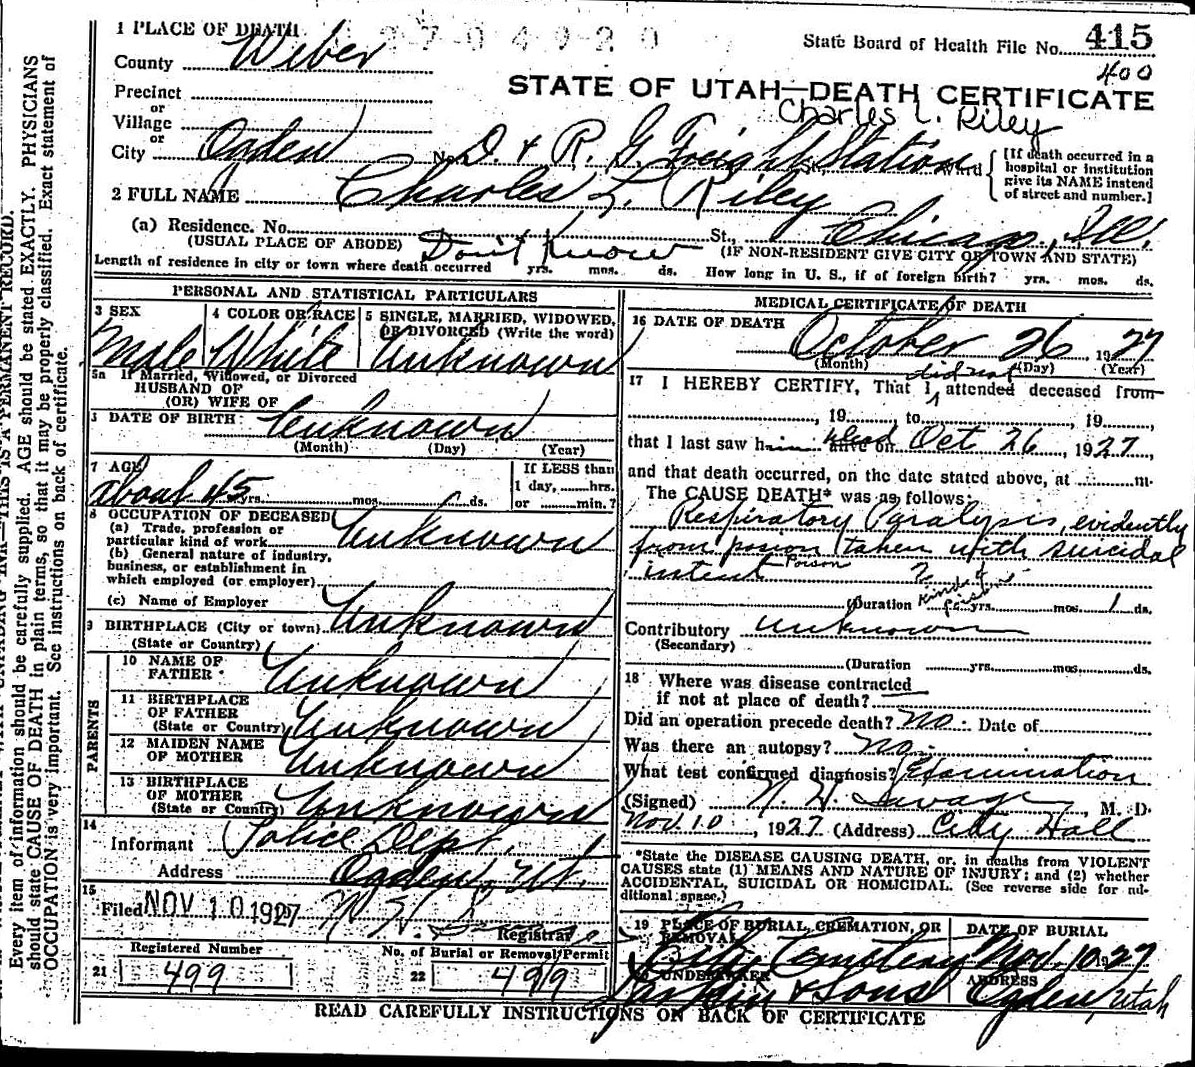 1 PLACE OF DEATH
2704920
State Board of Health File No. 415
400
County Weber
STATE OF UTAH—DEATH CERTIFICATE
Precinct
or
Charles L. Riley
Village
or
City Ogden No. D. & R. G. Freight Station St., Ward
[If death occurred in a hospital or institution give its NAME instead of street and number.]
2 FULL NAME Charles L. Riley
(a) Residence. No. St., Chicago, Ill.
(USUAL PLACE OF ABODE) (IF NON-RESIDENT GIVE CITY OR TOWN AND STATE)
Don't Know
Length of residence in city or town where death occurred yrs. mos. ds. How long in U. S., if of foreign birth? yrs. mos. ds.
PERSONAL AND STATISTICAL PARTICULARS
3 SEX
Male
4 COLOR OR RACE
White
5 SINGLE, MARRIED, WIDOWED,
OR DIVORCED (Write the word)
Unknown
5a If Married, Widowed, or Divorced
HUSBAND OF
(OR) WIFE OF
DATE OF BIRTH: Unknown
(Month) (Day) (Year)
7 AGE
about 45 yrs. mos. ds.
If LESS than
1 day, hrs.
or min.?
8 OCCUPATION OF DECEASED
(a) Trade, profession or
particular kind of work Unknown
(b) General nature of industry,
business, or establishment in
which employed (or employer)
(c) Name of Employer
9 BIRTHPLACE (City or town) Unknown
(State or Country)
PARENTS
10 NAME OF
FATHER Unknown
11 BIRTHPLACE
OF FATHER
(State or Country) Unknown
12 MAIDEN NAME
OF MOTHER Unknown
13 BIRTHPLACE
OF MOTHER
(State or Country) Unknown
14
Informant Police Dept.
Address Ogden, Ut.
15
Filed NOV 10 1927
Registrar
Registered Number
21 499
No. of Burial or Removal Permit
22 499
MEDICAL CERTIFICATE OF DEATH
16 DATE OF DEATH
October 26, 1927
(Month) (Day) (Year)
did not
17 I HEREBY CERTIFY, That I attended deceased from
, 19 , to , 19
that I last saw him dead alive on Oct 26, 1927,
and that death occurred, on the date stated above, at m.
The CAUSE DEATH* was as follows:
Respiratory Paralysis, evidently
from poison taken with suicidal
intent Poison
(Duration yrs. mos. 1 ds.
Contributory unknown
(Secondary)
(Duration yrs. mos. ds.
18 Where was disease contracted
if not at place of death?
Did an operation precede death? No. Date of
Was there an autopsy? No.
What test confirmed diagnosis? Examination
(Signed) N. H. Savage, M. D.
Nov. 10, 1927 (Address) City Hall
*State the DISEASE CAUSING DEATH, or, in deaths from VIOLENT
CAUSES state (1) MEANS AND NATURE OF INJURY; and (2) whether
ACCIDENTAL, SUICIDAL OR HOMICIDAL. (See reverse side for ad-
ditional space.)
19 PLACE OF BURIAL, CREMATION, OR
REMOVAL
City Cemetery
DATE OF BURIAL
Nov. 10 1927
UNDERTAKER
Larkin & Sons
ADDRESS
Ogden, Utah
READ CAREFULLY INSTRUCTIONS ON BACK OF CERTIFICATE
THIS IS A PERMANENT RECORD.
Every item of information should be carefully supplied. AGE should be stated EXACTLY. PHYSICIANS
should state CAUSE OF DEATH in plain terms, so that it may be properly classified. Exact statement of
OCCUPATION is very important. See instructions on back of certificate.